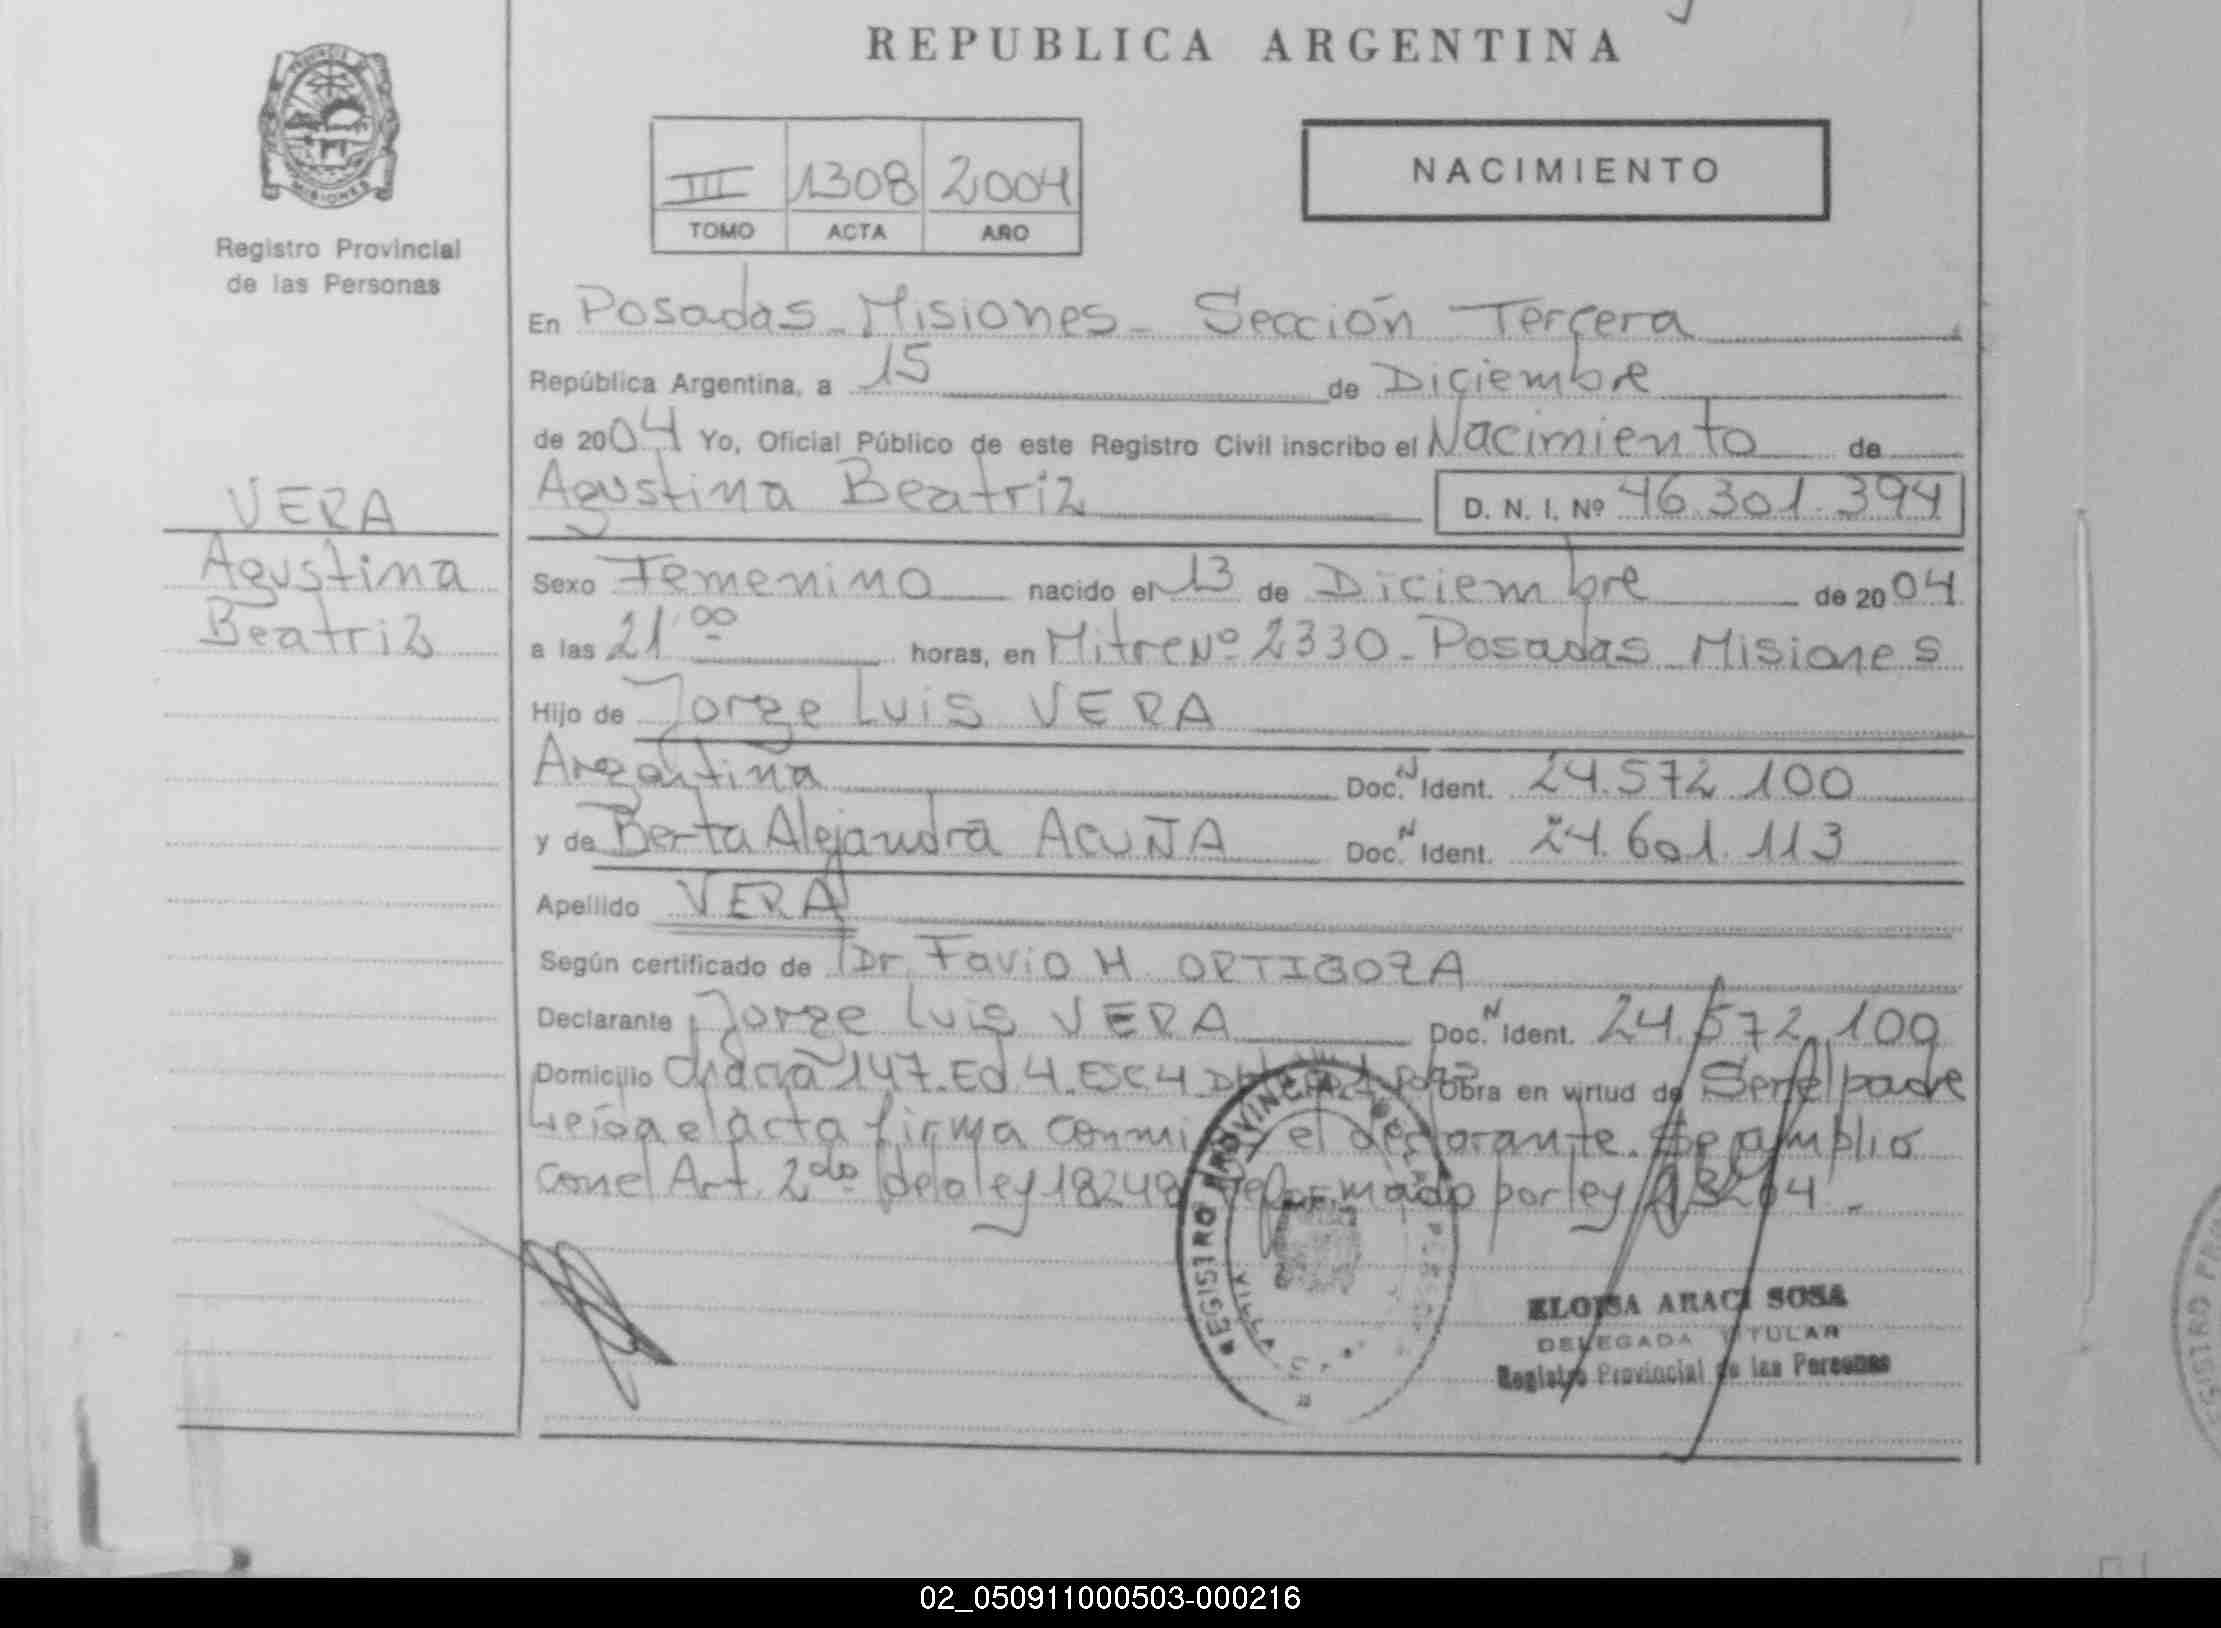 REPUBLICA ARGENTINA
PROVINCIA DE
MISIONES
Registro Provincial
de las Personas
III 1308 2004
TOMO ACTA AÑO
NACIMIENTO
En Posadas - Misiones - Sección Tercera
República Argentina, a 15 de Diciembre
de 2004 Yo, Oficial Público de este Registro Civil inscribo el Nacimiento de
VERA
Agustina Beatriz D. N. I. Nº 46.301.394
Agustina
Beatriz
Sexo Femenino nacido el 13 de Diciembre de 2004
a las 21:00 horas, en Mitre Nº 2330 - Posadas - Misiones
Hijo de Jorge Luis VERA
Argentina Doc. N Ident. 24.572.100
y de Berta Alejandra ACUÑA Doc. N Ident. 24.601.113
Apellido VERA
Según certificado de Dr. Favio H ORTIGOZA
Declarante Jorge Luis VERA Doc. N Ident. 24.572.100
Domicilio Chacra 147. Ed 4. Esc 4 Obra en virtud de Ser el padre
Leída el acta firma conmigo el declarante. Se amplio
con el Art. 2do de la ley 18248 Reformado por ley 23264. -
REGISTRO PROVINCIAL DE LAS PERSONAS
ELOISA ARACI SOSA
DELEGADA TITULAR
Registro Provincial de las Personas
REGISTRO
02_050911000503-000216